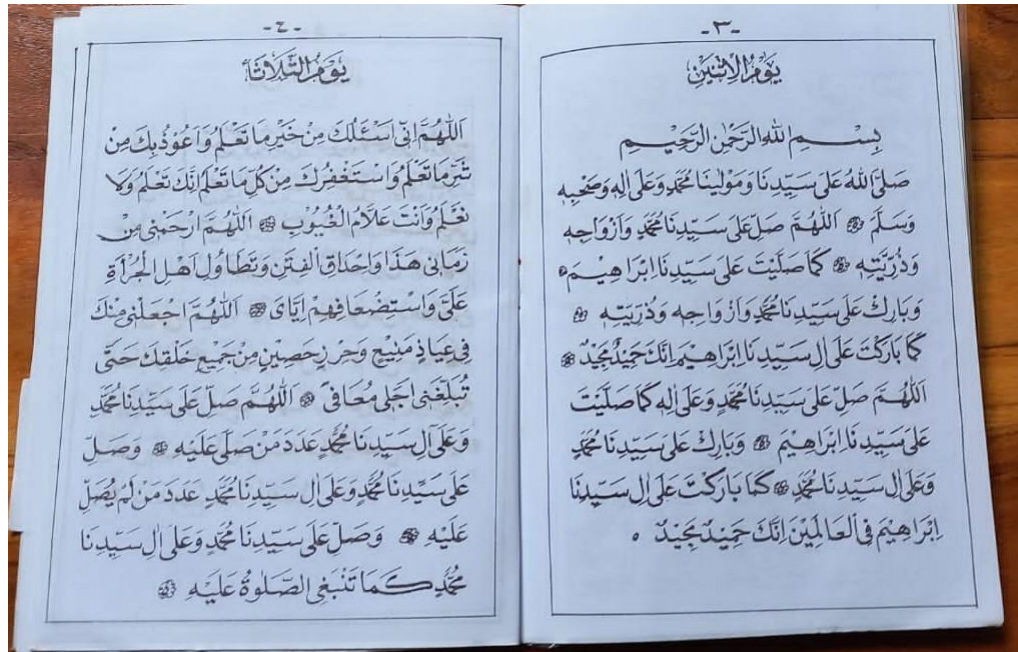 -٣-
يَوْمُ الْاِثْنَيْنِ
بِسْــــمِ اللهِ الرَّحْمٰنِ الرَّحِيْــمِ
صَلَّى اللهُ عَلٰى سَيِّدِنَا وَمَوْلٰينَا مُحَمَّدٍ وَعَلٰى اٰلِهٖ وَصَحْبِهٖ
وَسَلَّمَ ۞ اَللّٰهُمَّ صَلِّ عَلٰى سَيِّدِنَا مُحَمَّدٍ وَاَزْوَاجِهٖ
وَذُرِّيَّتِهٖ ۞ كَمَا صَلَّيْتَ عَلٰى سَيِّدِنَا اِبْرَاهِيْــمَ ۞
وَبَارِكْ عَلٰى سَيِّدِنَا مُحَمَّدٍ وَاَزْوَاجِهٖ وَذُرِّيَّتِهٖ ۞
كَمَا بَارَكْتَ عَلٰى اٰلِ سَيِّدِنَا اِبْرَاهِيْمَ اِنَّكَ حَمِيْدٌ مَجِيْدٌ ۞
اَللّٰهُمَّ صَلِّ عَلٰى سَيِّدِنَا مُحَمَّدٍ وَعَلٰى اٰلِهٖ كَمَا صَلَّيْتَ
عَلٰى سَيِّدِنَا اِبْرَاهِيْمَ ۞ وَبَارِكْ عَلٰى سَيِّدِنَا مُحَمَّدٍ
وَعَلٰى اٰلِ سَيِّدِنَا مُحَمَّدٍ ۞ كَمَا بَارَكْتَ عَلٰى اٰلِ سَيِّدِنَا
اِبْرَاهِيْمَ فِى الْعَالَمِيْنَ اِنَّكَ حَمِيْدٌ مَجِيْدٌ ه
-٤-
يَوْمُ الثَّلَاثَاءِ
اَللّٰهُمَّ اِنِّى اَسْئَلُكَ مِنْ خَيْرِ مَا تَعْلَمُ وَاَعُوْذُ بِكَ مِنْ
شَرِّ مَا تَعْلَمُ وَاسْتَغْفِرُكَ مِنْ كُلِّ مَا تَعْلَمُ اِنَّكَ تَعْلَمُ وَلَا
نَعْلَمُ وَاَنْتَ عَلَّامُ الْغُيُوْبِ ۞ اَللّٰهُمَّ ارْحَمْنِى مِنْ
زَمَانِى هٰذَا وَاِحْدَاقِ الْفِتَنِ وَتَطَاوُلِ اَهْلِ الْجُرْأَةِ
عَلَىَّ وَاسْتِضْعَافِهِمْ اِيَّاىَ ۞ اَللّٰهُمَّ اجْعَلْنِى مِنْكَ
فِى عِيَاذٍ مَنِيْعٍ وَحِرْزٍ حَصِيْنٍ مِنْ جَمِيْعِ خَلْقِكَ حَتّٰى
تُبَلِّغَنِى اَجَلِى مُعَافًى ۞ اَللّٰهُمَّ صَلِّ عَلٰى سَيِّدِنَا مُحَمَّدٍ
وَعَلٰى اٰلِ سَيِّدِنَا مُحَمَّدٍ عَدَدَ مَنْ صَلّٰى عَلَيْهِ ۞ وَصَلِّ
عَلٰى سَيِّدِنَا مُحَمَّدٍ وَعَلٰى اٰلِ سَيِّدِنَا مُحَمَّدٍ عَدَدَ مَنْ لَمْ يُصَلِّ
عَلَيْهِ ۞ وَصَلِّ عَلٰى سَيِّدِنَا مُحَمَّدٍ وَعَلٰى اٰلِ سَيِّدِنَا
مُحَمَّدٍ كَــمَا تَنْبَغِى الصَّلٰوةُ عَلَيْهِ ۞